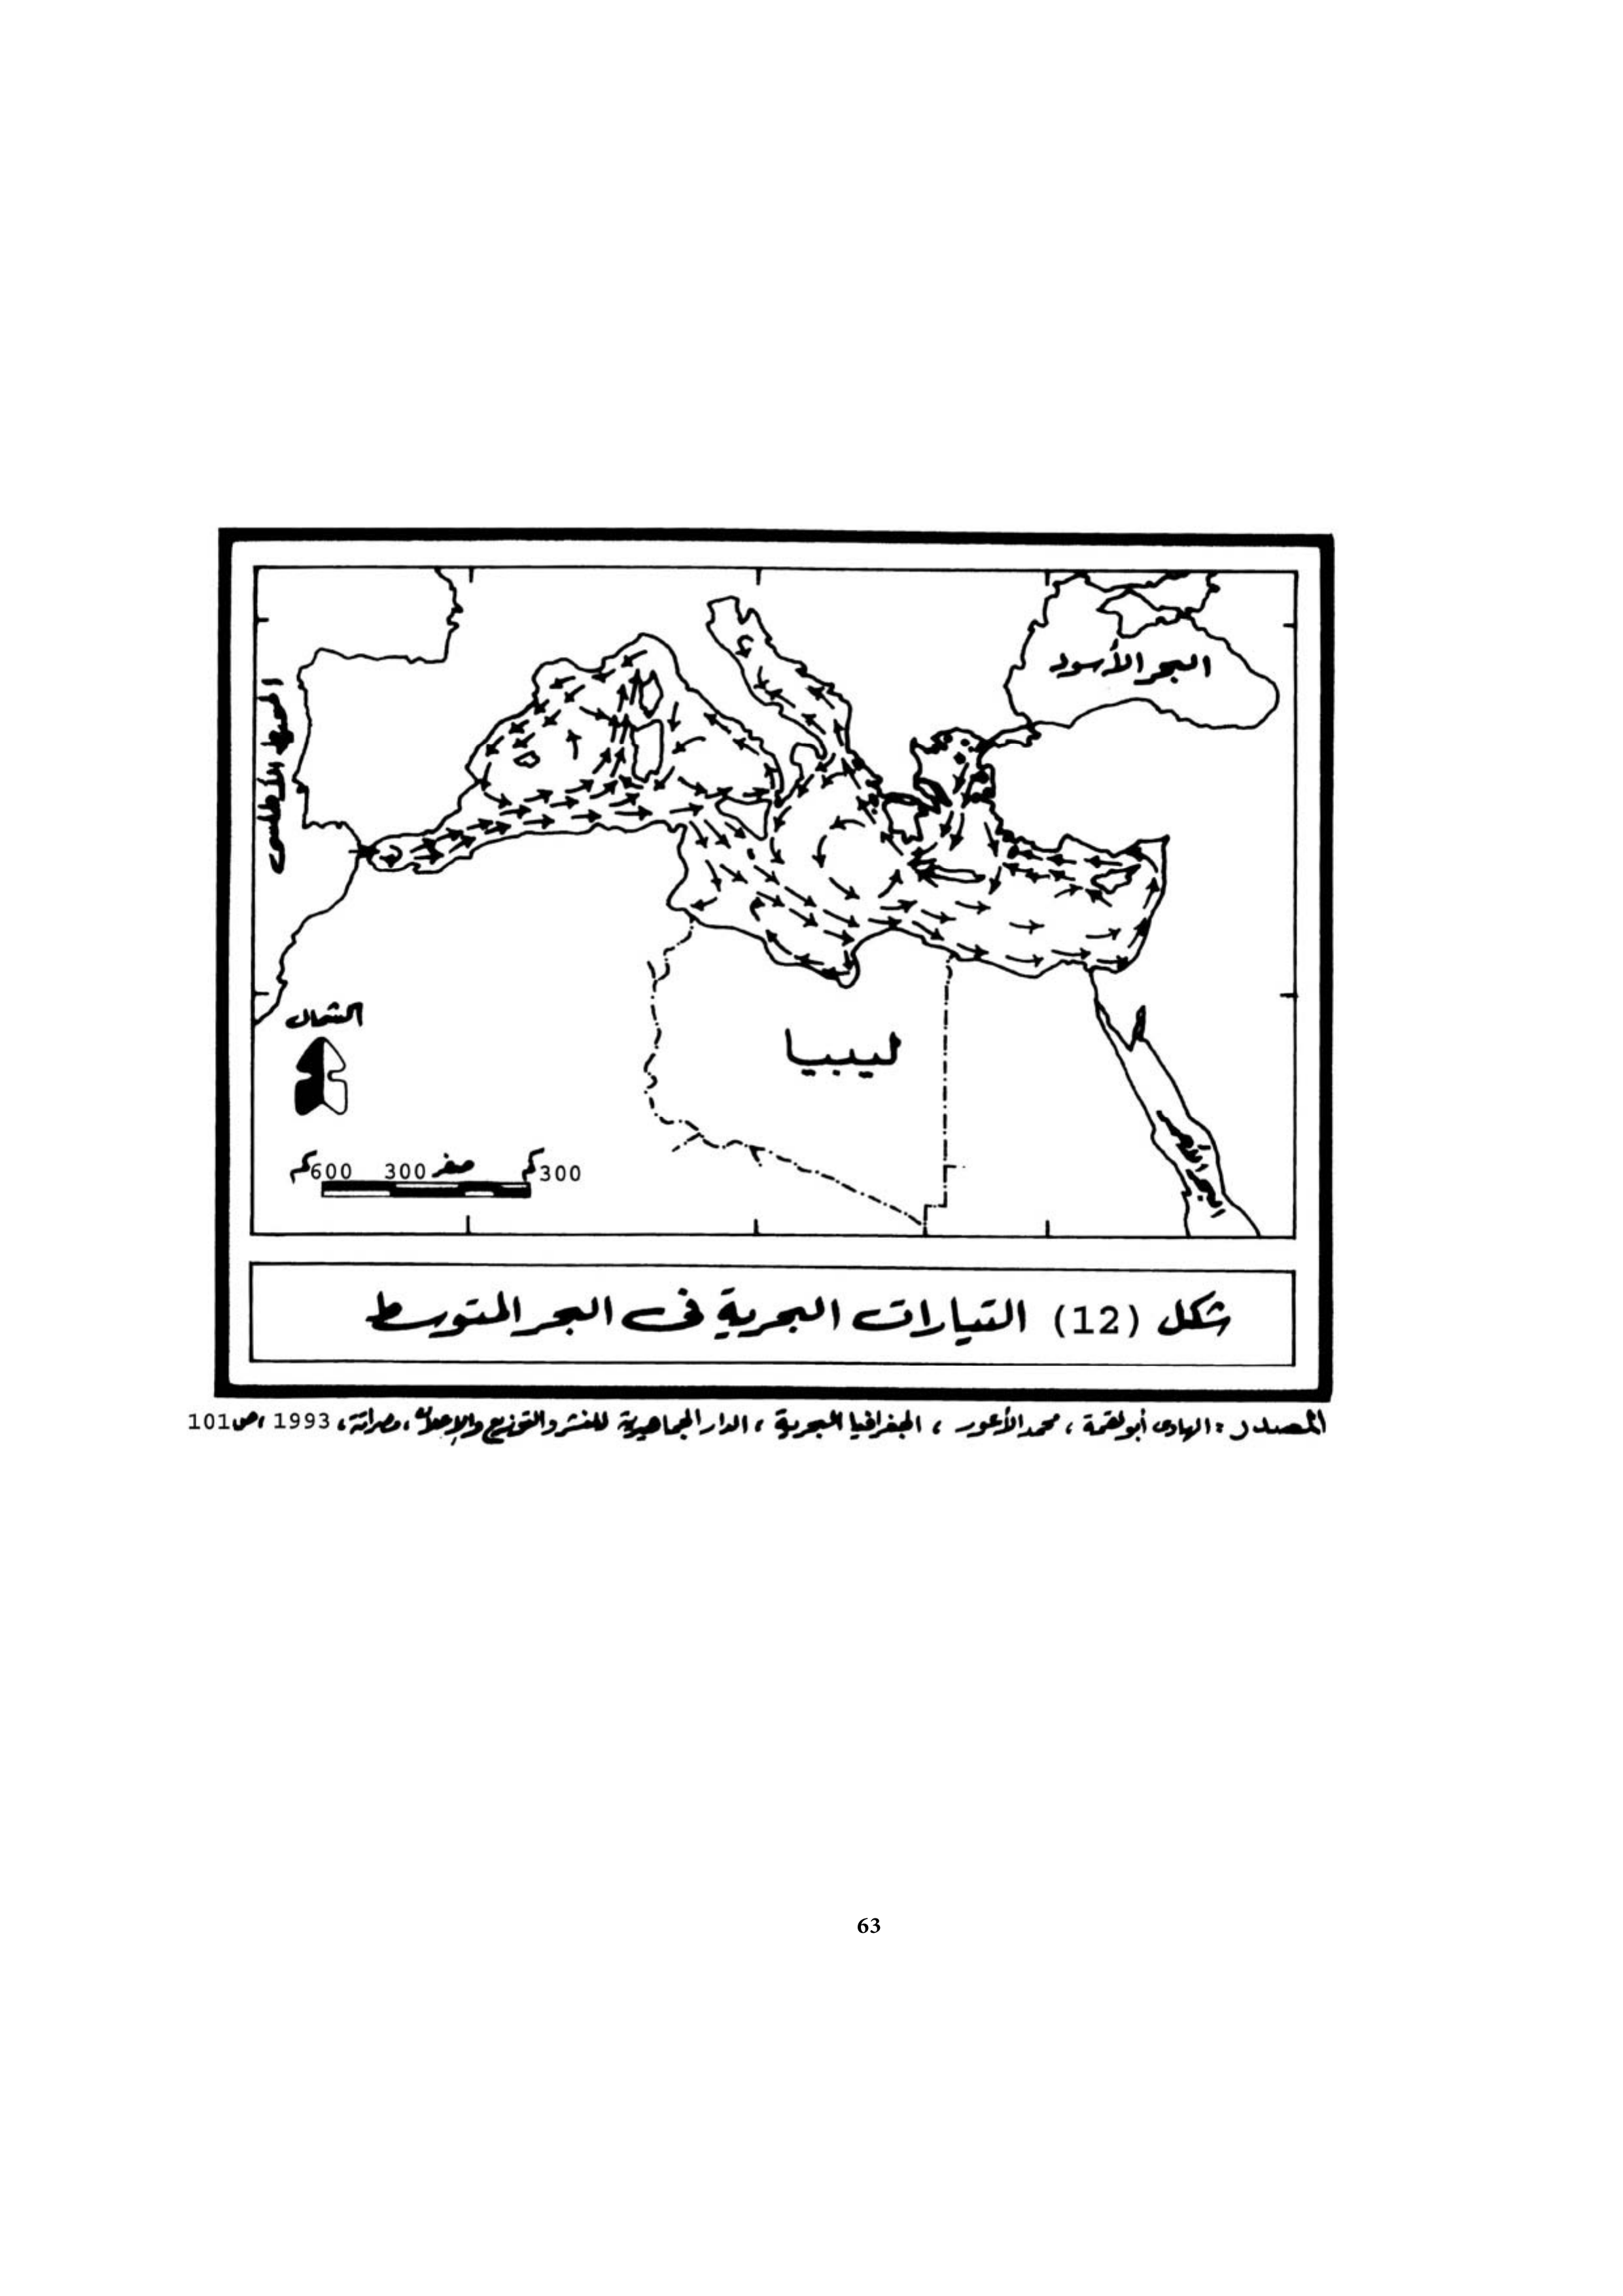 البحر الأسود
المحيط
الشمال
ليبيا
600كم 300 صفر 300كم
شكل (12) التيارات البحرية فى البحر المتوسط
المصدر : الهادى أبولقمة ، محمد الأعور ، الجغرافيا البحرية ، الدار الجماهيرية للنشر والتوزيع والإعلان ، مصراتة ، 1993 ، ص101
63